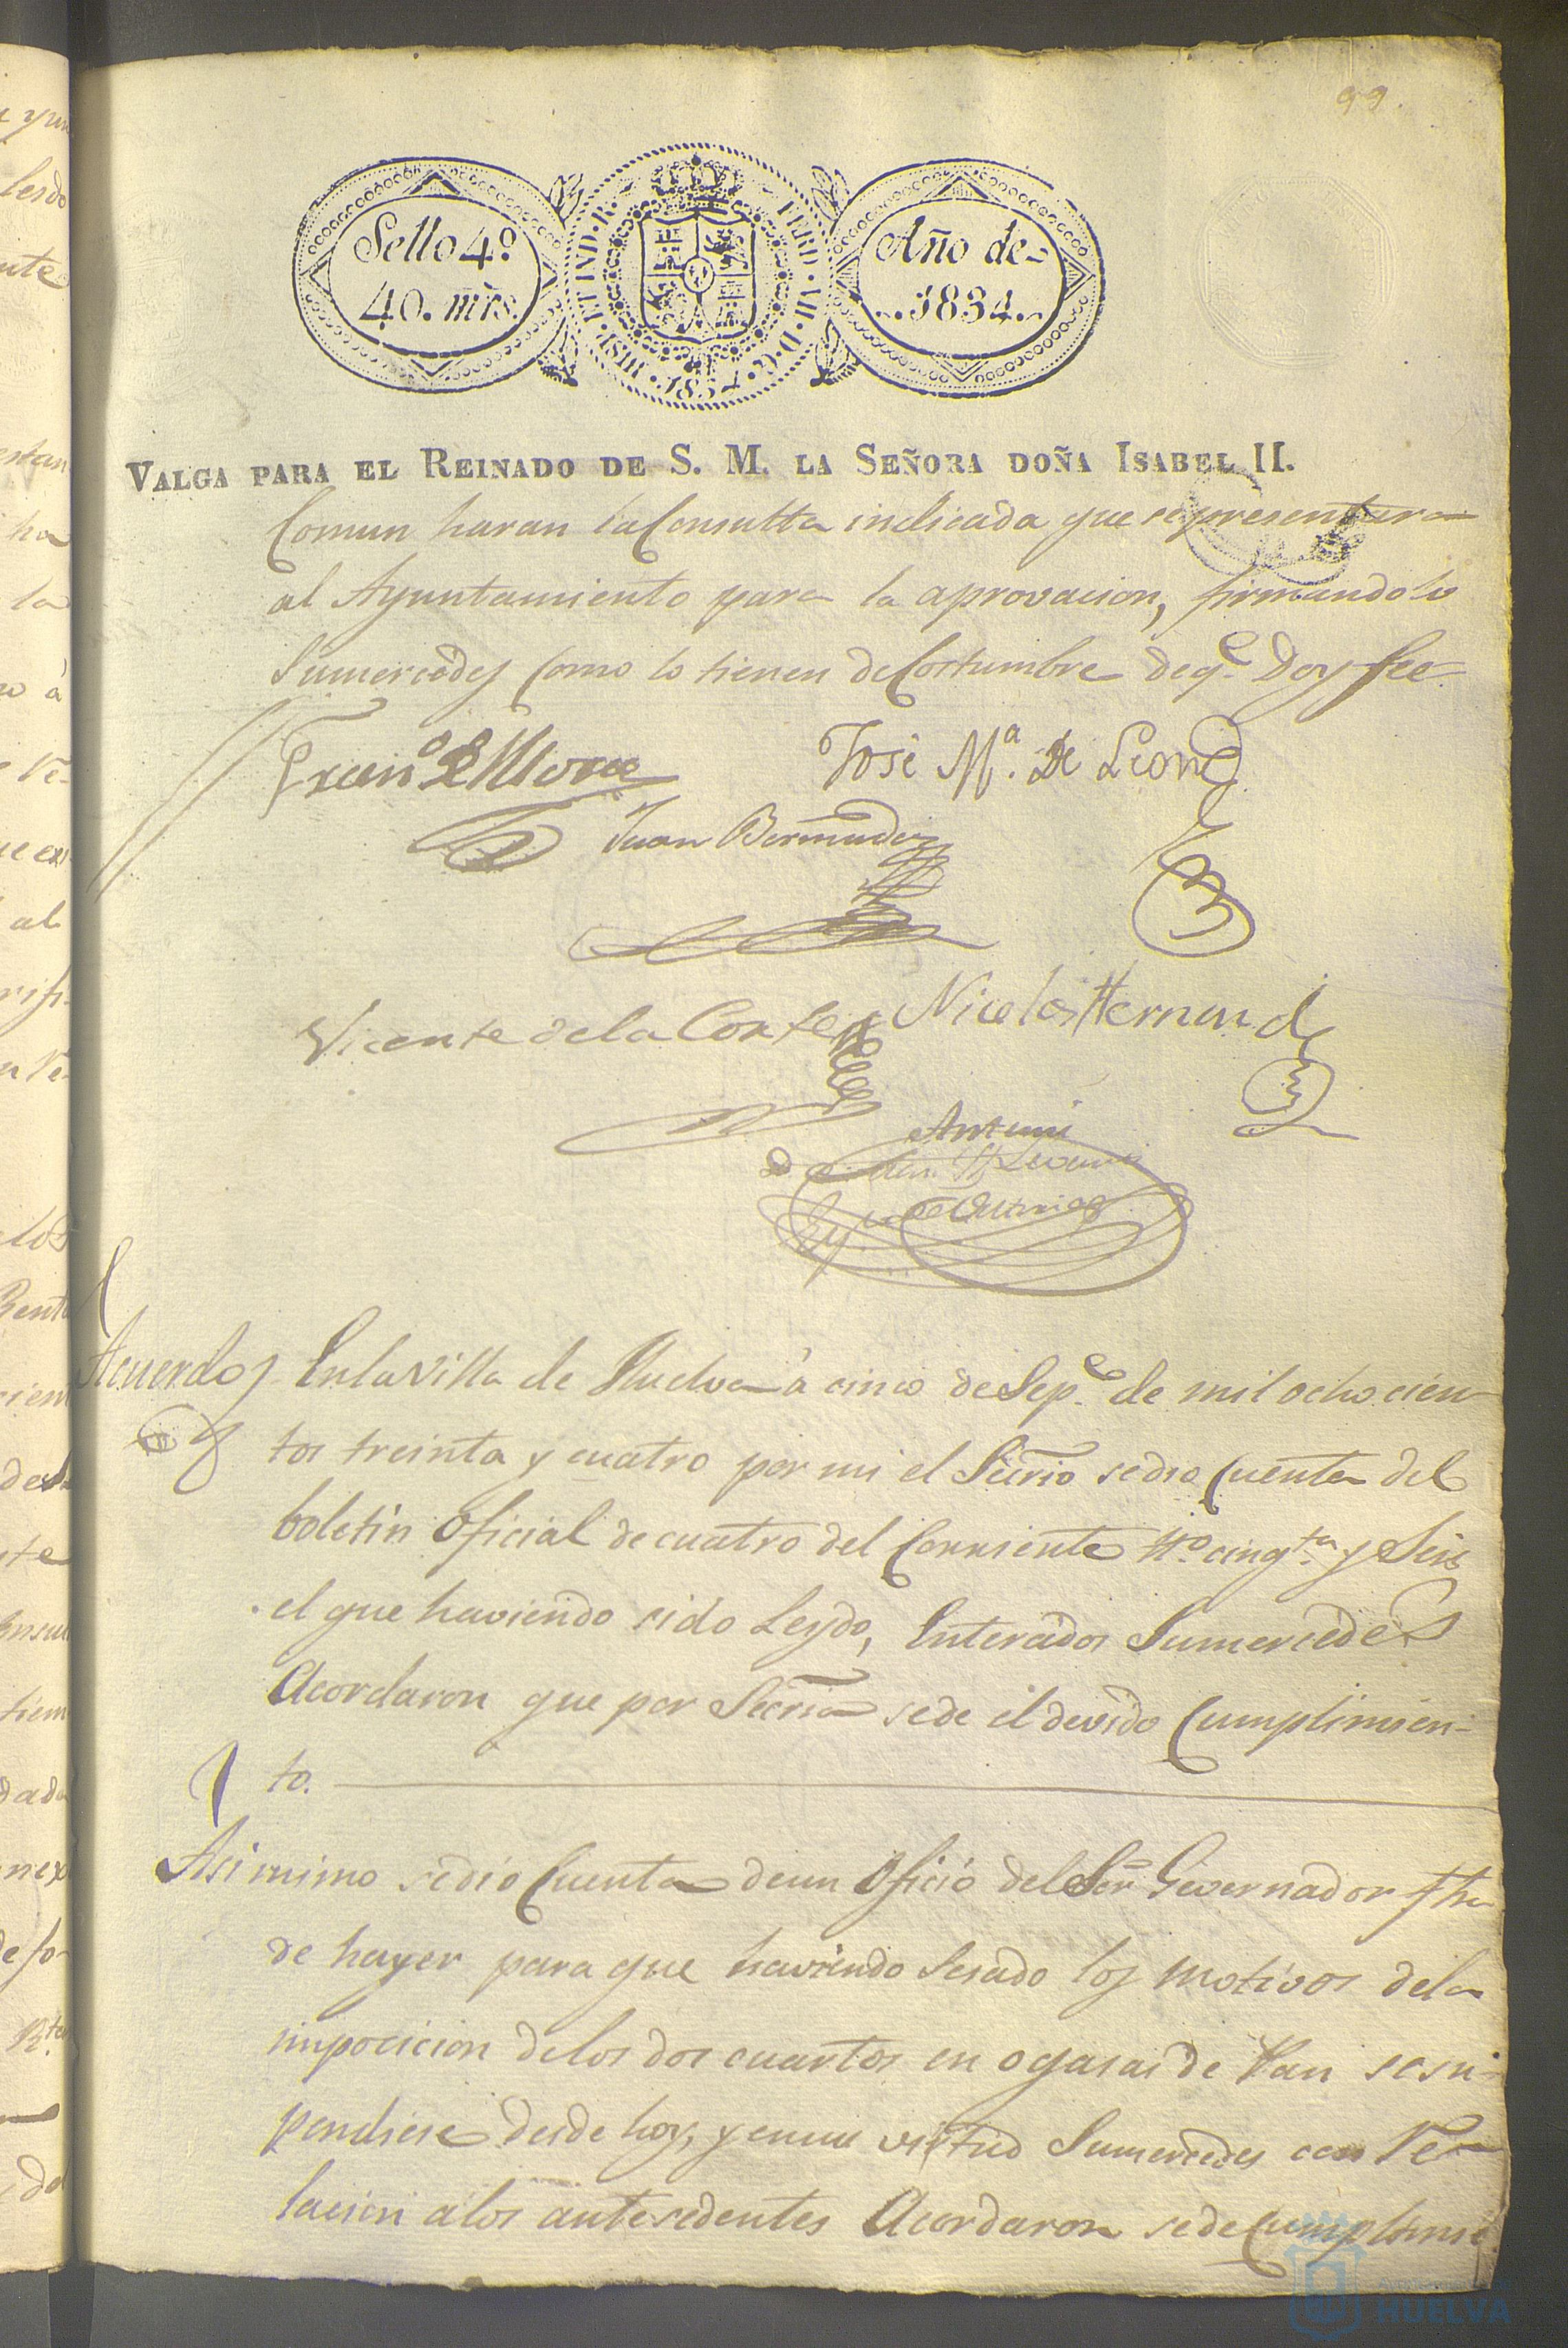 99.
Sello 4.º
40. mrs.
HISP. ET IND. R.
FERD. VII. D. G.
1834.
Año de
1834.
VALGA PARA EL REINADO DE S. M. LA SEÑORA DOÑA ISABEL II.
Comun haran la Consulta indicada que se presentara
al Ayuntamiento para la aprovacion, firmandolo
Sumercedes como lo tienen de Costumbre de q.e Doy fee
Fran.co de Mora
José M.a De Leon
Juan Bermudez
Vicente de la Corte
Nicolas Hernand
Antemi
Acuerdo
En la Villa de Huelva à cinco de Sep.e de mil ochocien
tos treinta y cuatro por mi el Sŕrio se dio Cuenta del
boletin Oficial de cuatro del Corriente N.º cinq.ta y Seis
el que haviendo sido Leydo, Enterados Sumercedes
Acordaron que por Secria se de el devido Cumplimien-
to.
Asimimo se dio Cuenta de un Oficio del Sor. Governador fha
de hayer para que haviendo Sesado los motivos de la
imposicion de los dos cuartos en ogasas de Pan se sus-
pendiese desde hoy, y en su virtud Sumercedes con Re
lacion a los antesedentes Acordaron se de Cumplimie
los
al
ha
la
HUELVA